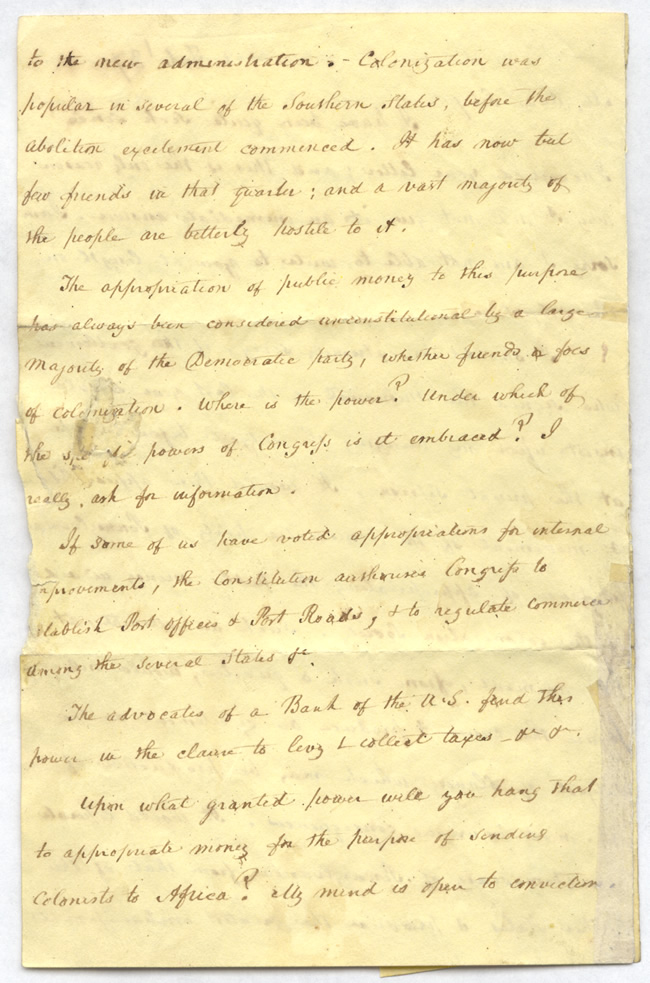 to the new administration. - Colonization was
popular in several of the Southern States, before the
abolition excitement commenced. It has now but
few friends in that quarter; and a vast majority of
the people are bitterly hostile to it.
The appropriation of public money to this purpose
has always been considered unconstitutional by a large
majority of the Democratic party, whether friends or foes
of colonization. Where is the power? Under which of
the powers of Congress is it embraced? I
really ask for information.
If some of us have voted appropriations for internal
mprovements, the Constitution authorises Congress to
stablish Post offices & Post Roads, & to regulate commerce
among the several States &c.
The advocates of a Bank of the U.S. find this
power in the clause to levy & collect taxes - &c &c.
Upon what granted power will you hang that
to appropriate money for the purpose of sending
Colonists to Africa? My mind is open to conviction.